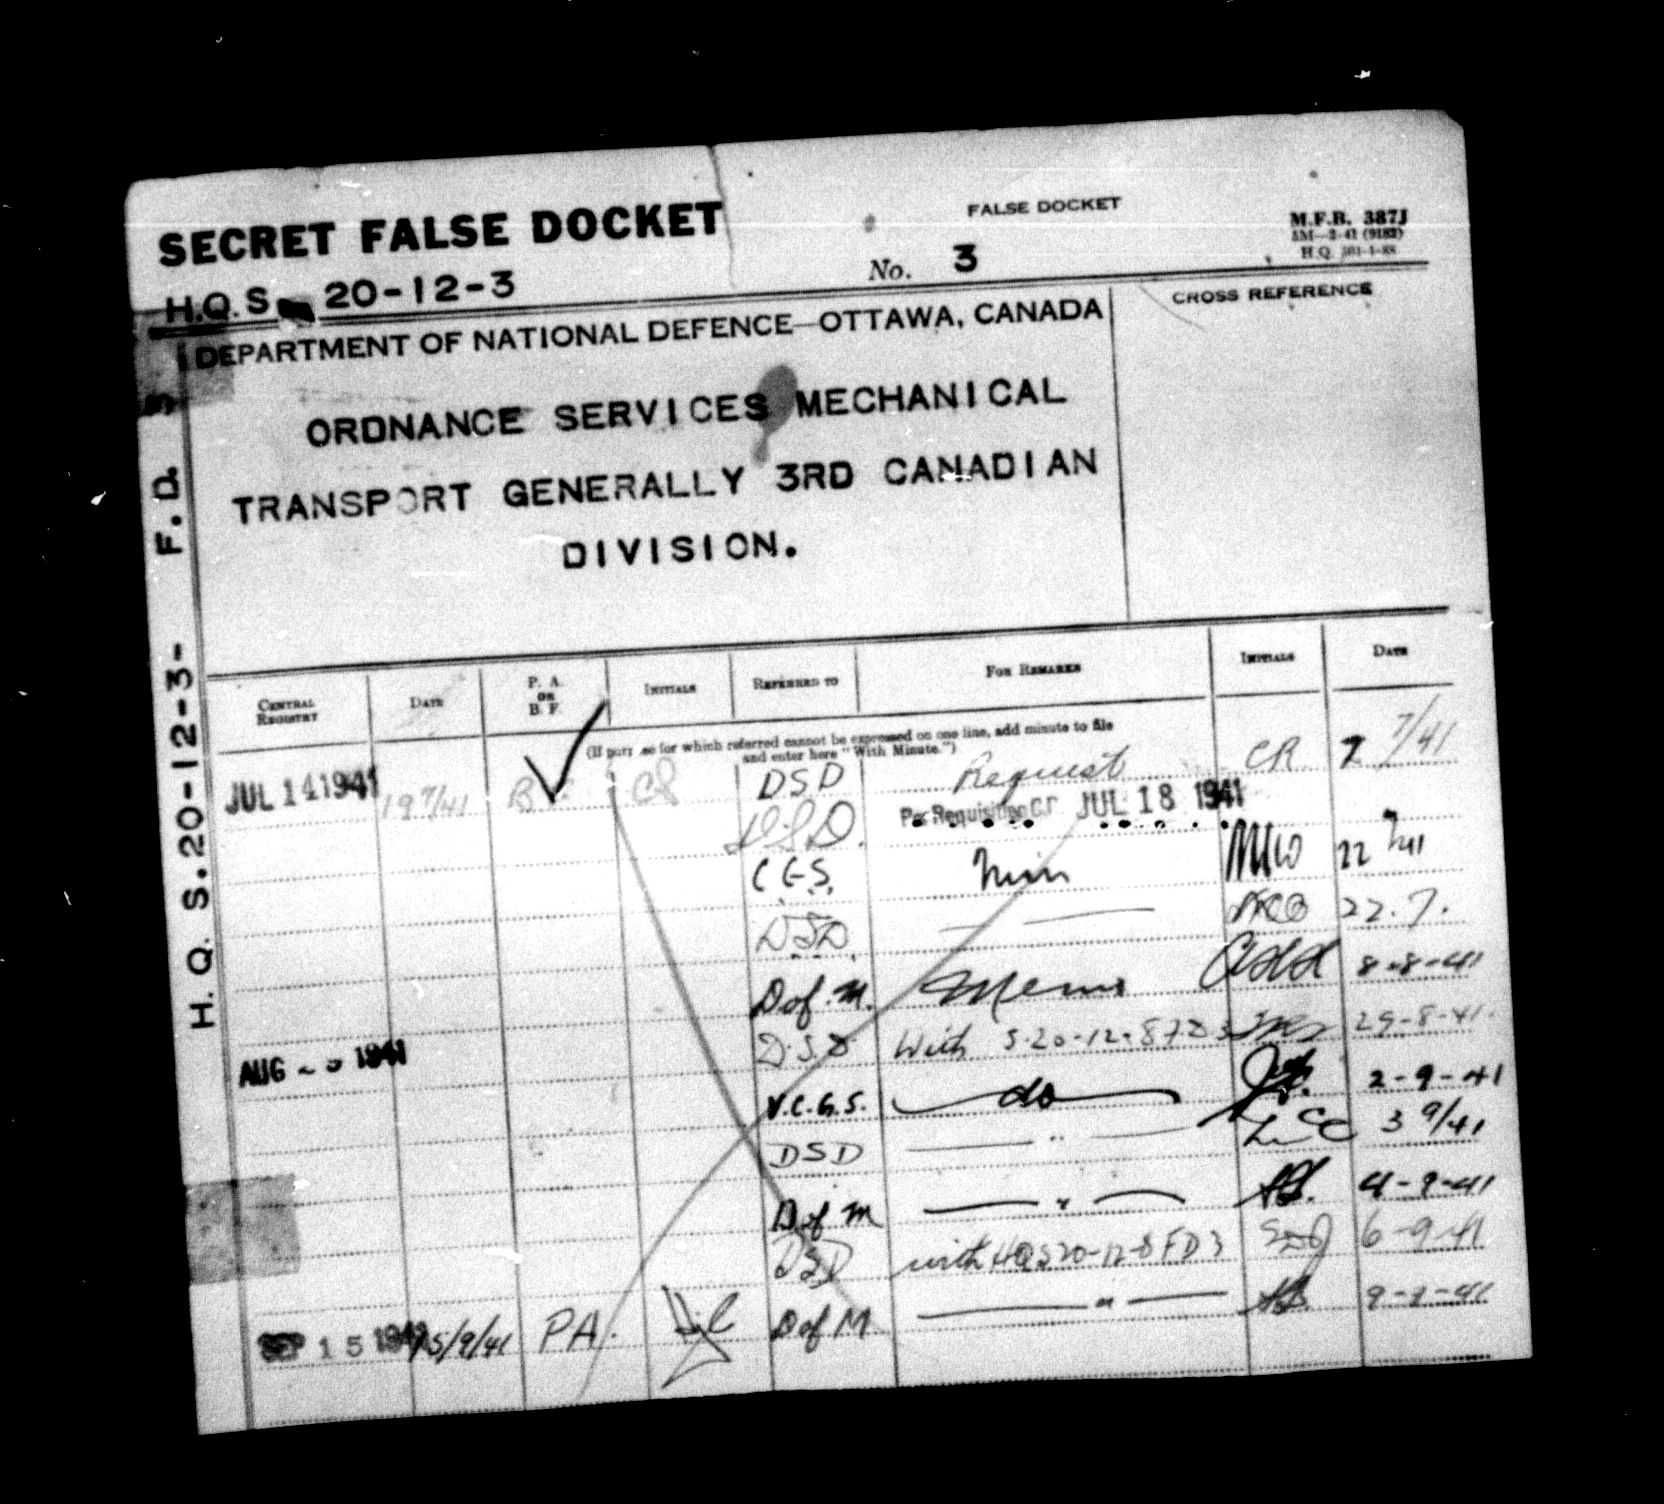 SECRET FALSE DOCKET
FALSE DOCKET
M.F.B. 387J
H.Q.S. 20-12-3
No. 3
DEPARTMENT OF NATIONAL DEFENCE—OTTAWA, CANADA
CROSS REFERENCE
ORDNANCE SERVICES MECHANICAL
TRANSPORT GENERALLY 3RD CANADIAN
DIVISION.
H. Q. S. 20-12-3- F. D. 3
CENTRAL REGISTRY DATE P. A. OR B. F. INITIALS REFERRED TO FOR REMARKS INITIALS DATE
(If purpose for which referred cannot be expressed on one line, add minute to file
and enter here "With Minute.")
JUL 14 1941 19 7/41 B.F. CR DSD Request CR 7 7/41
DSD. Per Requisition Cr JUL 18 1941
C.G.S. Min 22 7/41
DSD 22.7.
D of M. Memo 8-8-41
AUG 1941 D.S.D With S.20-12-8 FD3 29-8-41.
V.C.G.S. do 2-9-41
DSD — " — 3 9/41
D of M — " — 4-9-41
DSD with HQS 20-12-8 FD3 6-9-41
SEP 15 1941 15/9/41 PA. D of M — " — 9-9-41